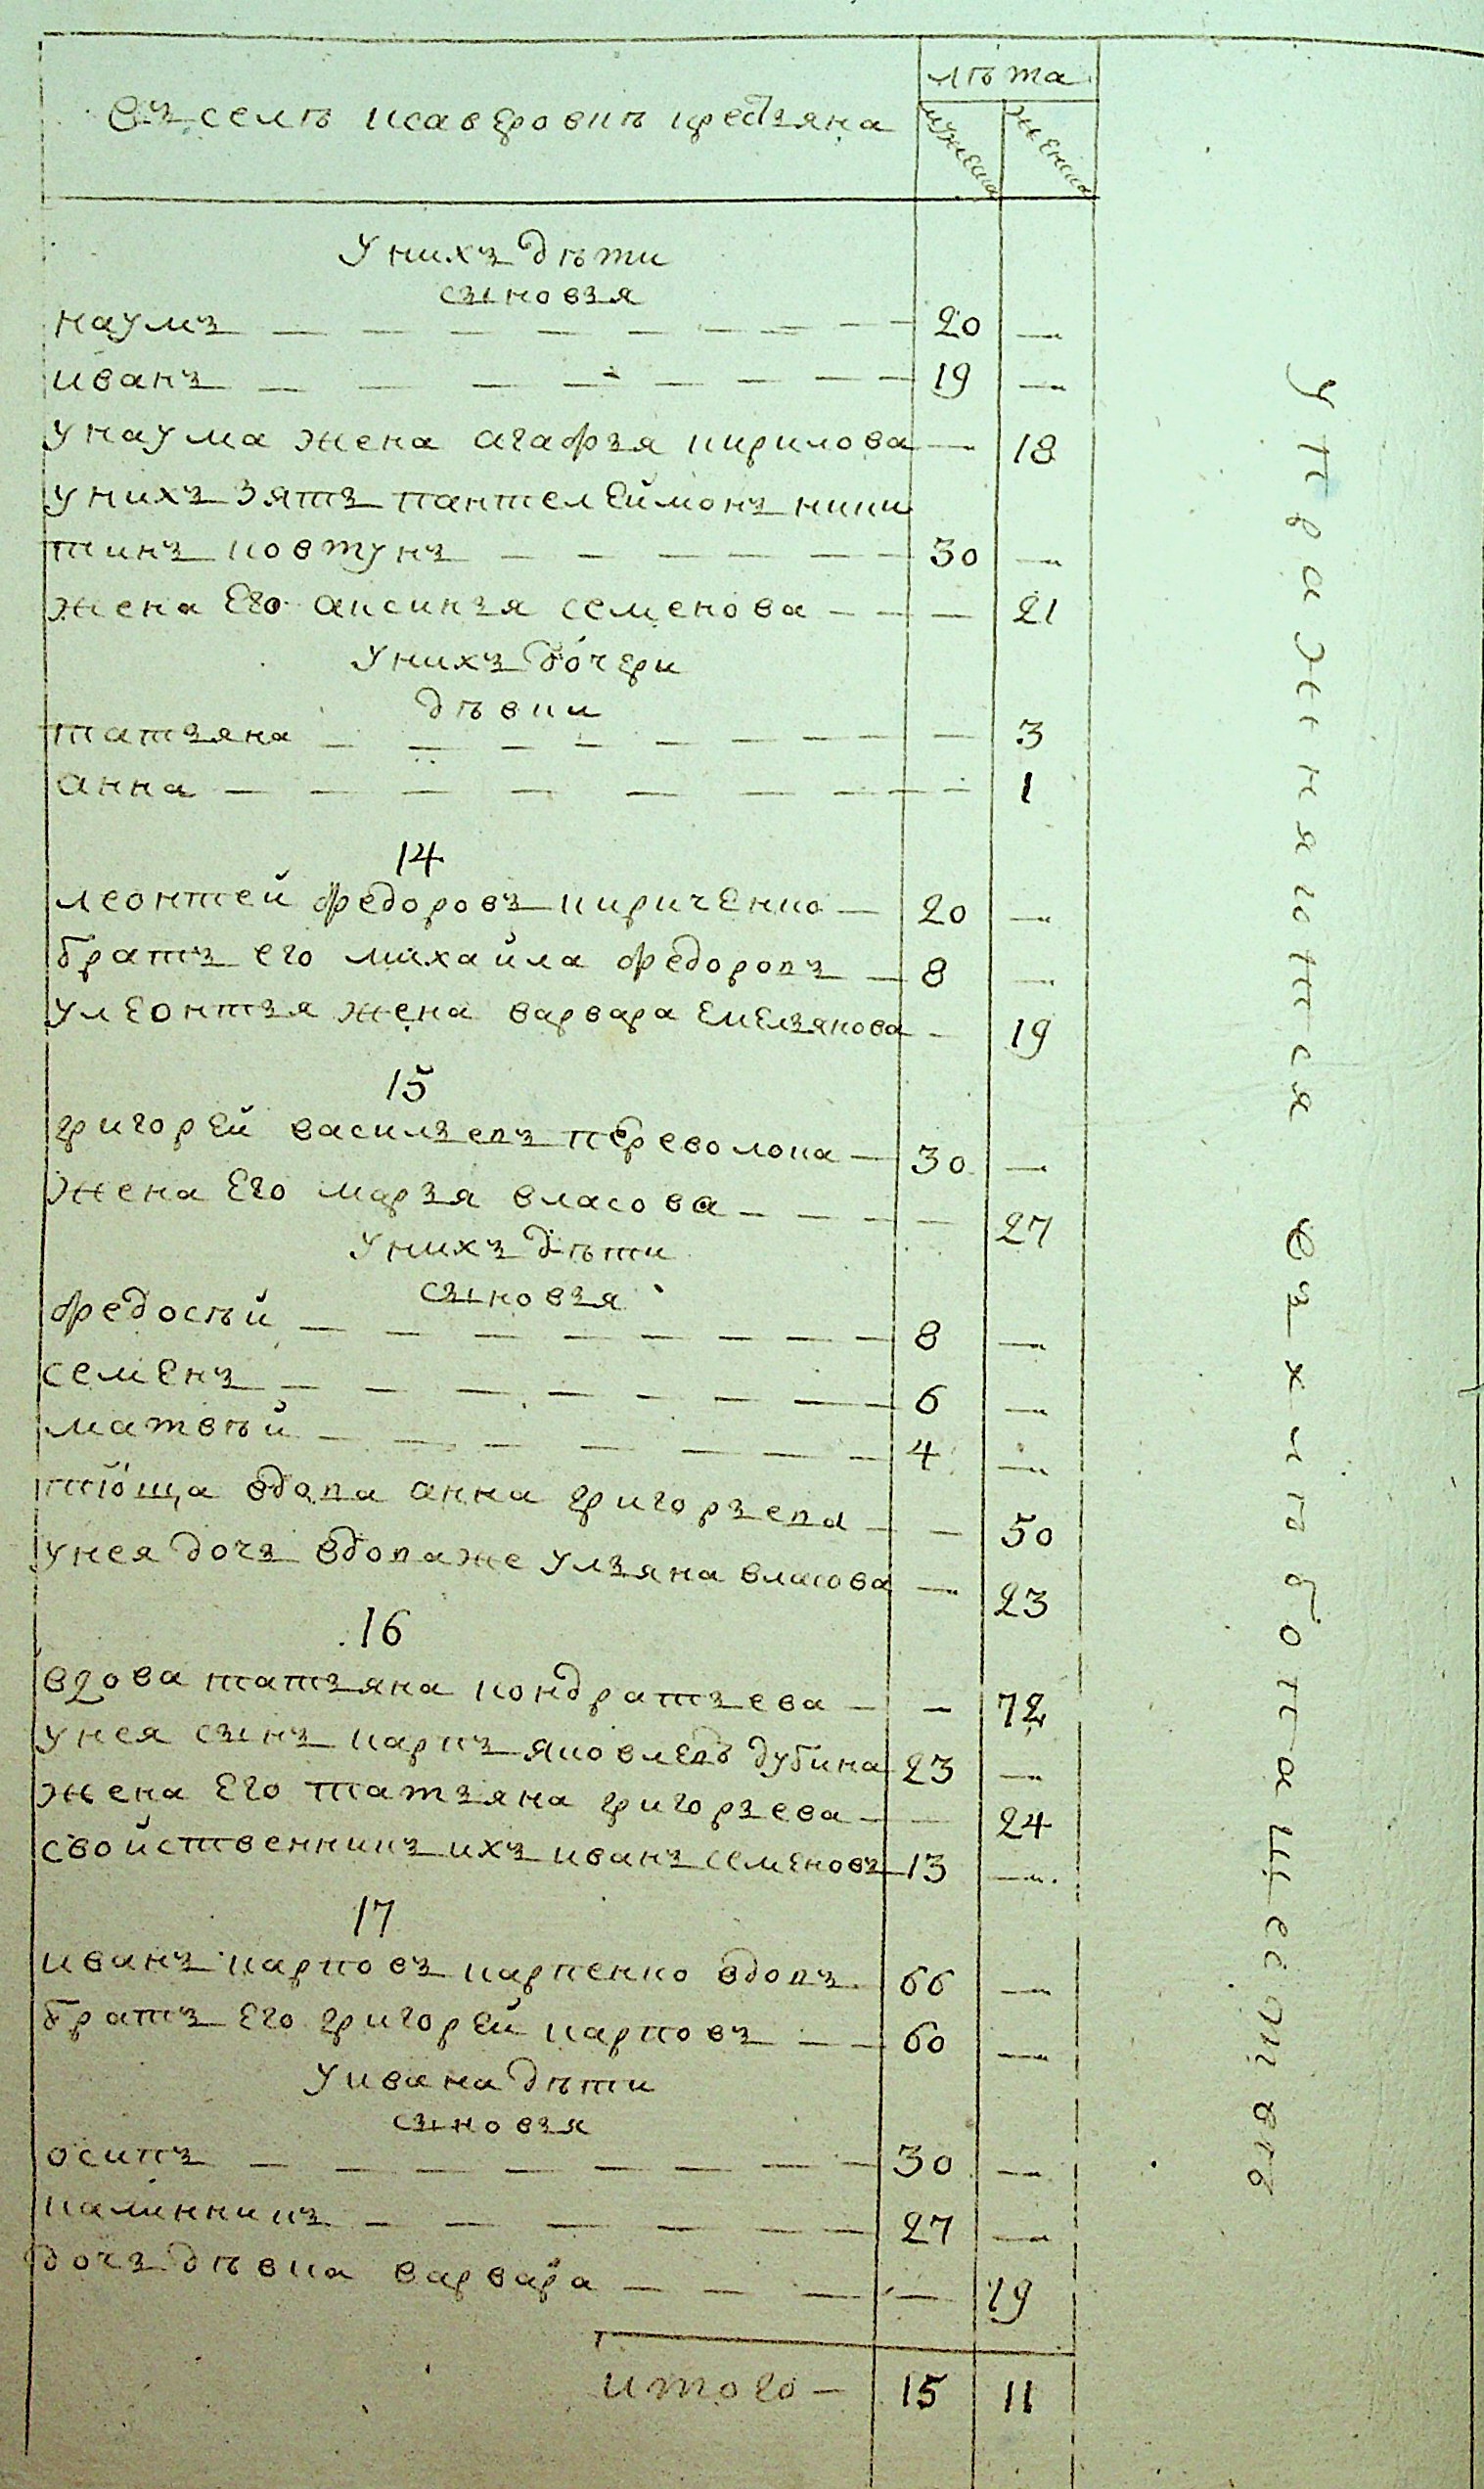 Въ селѣ исавѣровиѣ крестьяна
лѣта
мужеска
женска
У нихъ дѣти
сыновья
наумъ 20 —
иванъ 19 —
у наума жена агафья кирилова — 18
у нихъ зять пантелеймонъ ники
тинъ ковтунъ 30 —
жена его аксинья семенова — 21
У нихъ дочери
дѣвки
татьяна — 3
анна — 1
14
леонтей федоровъ кириченко — 20 —
братъ его михайла федоровъ — 8 —
у леонтья жена варвара емельянова — 19
15
григорей васильевъ переволока — 30 —
жена его марья власова — 27
У нихъ дѣти
сыновья
федосѣй 8 —
семенъ 6 —
матвѣй 4 —
тіоща вдова анна григорьева — 50
у нея дочь вдова же ульяна власова — 23
16
вдова татьяна кондратьева — 72
у нея сынъ карпъ яковлевъ дубина 23 —
жена его татьяна григорьева — 24
свойственникъ ихъ иванъ семеновъ 13 —
17
иванъ карповъ карпенко вдовъ 66 —
братъ его григорей карповъ — 60 —
У ивана дѣти
сыновья
осипъ 30 —
калинникъ 27 —
дочь дѣвка варвара — 19
итого — 15 11
упражняются въ хлѣбопашествѣ